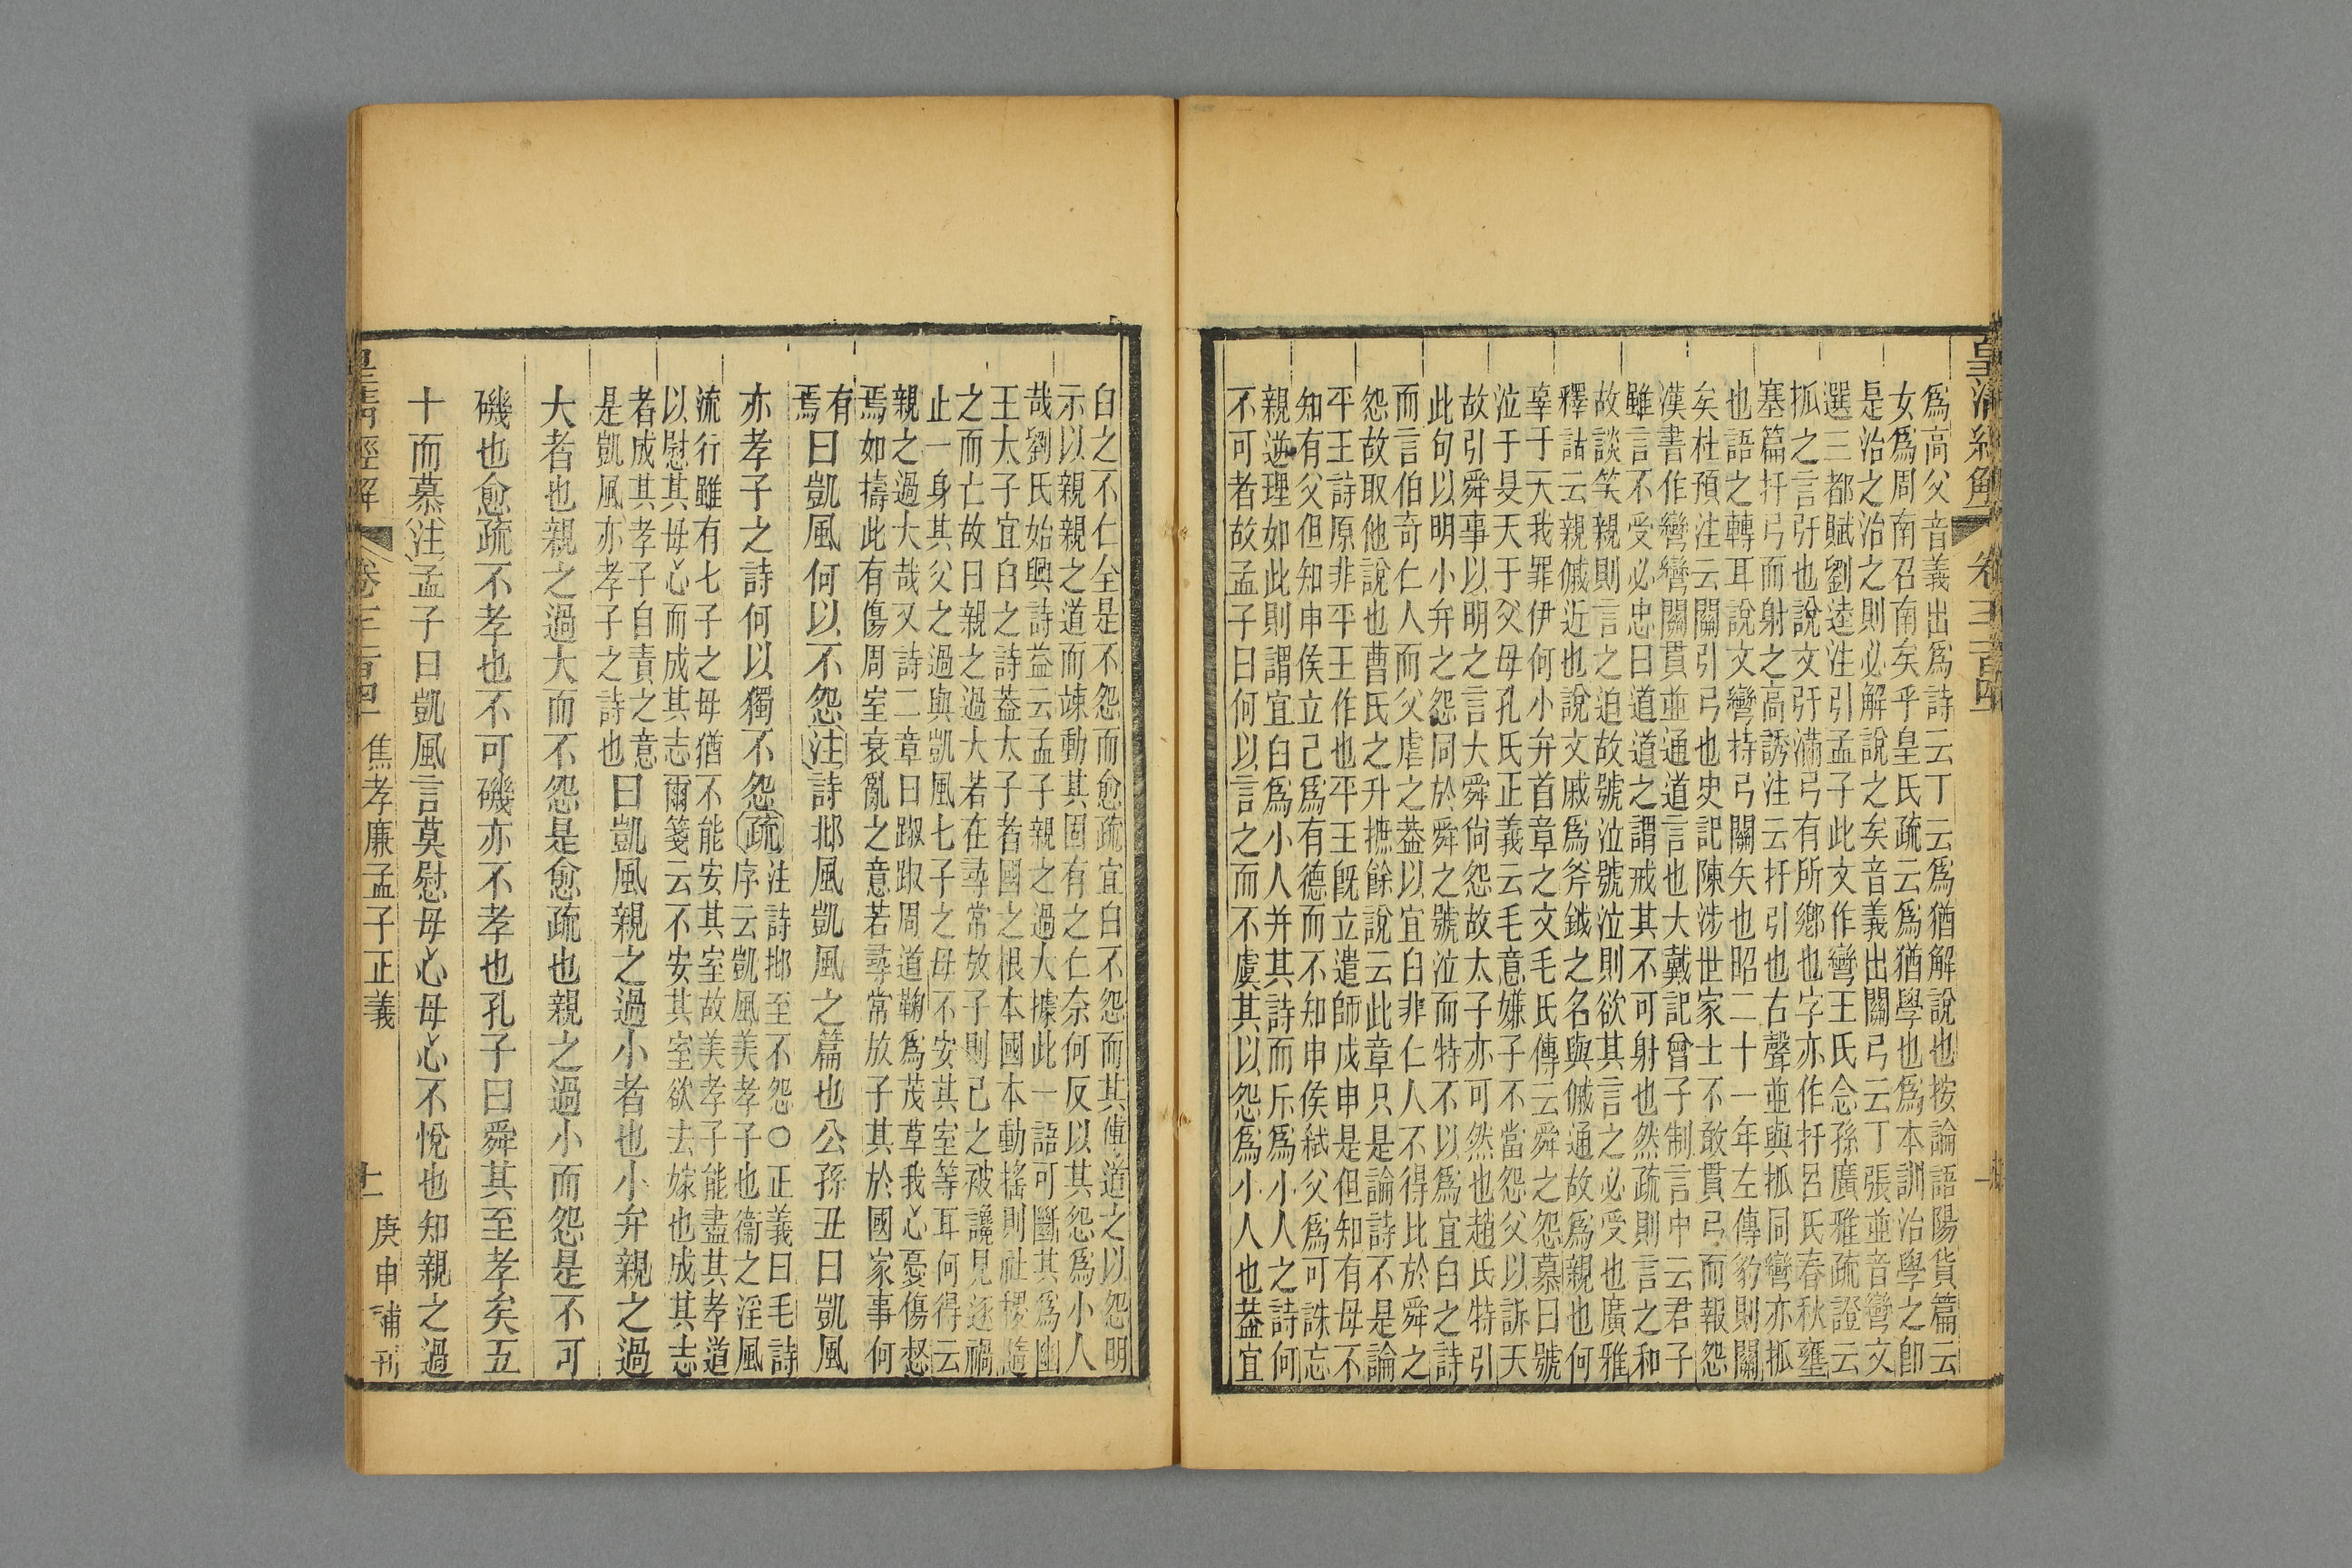 皇清經解 卷一千一百四十
爲高父音義出爲詩云丁云爲猶解說也按論語陽貨篇云
女爲周南召南矣乎皇氏疏云爲猶學也爲本訓治學之卽
是治之治之則必解說之矣音義出關弓云丁張並音彎文
選三都賦劉逵注引孟子此文作彎王氏念孫廣雅疏證云
抓之言弙也說文弙滿弓有所鄉也字亦作扜呂氏春秋壅
塞篇扜弓而射之高誘注云扜引也古聲並與抓同彎亦抓
也語之轉耳說文彎持弓關矢也昭二十一年左傳豹則關
矣杜預注云關引弓也史記陳涉世家士不敢貫弓而報怨
漢書作彎彎關貫並通道言也大戴記曾子制言中云君子
雖言不受必忠曰道道之謂戒其不可射也然疏則言之和
故談笑親則言之迫故號泣號泣則欲其言之必受也廣雅
釋詁云親傶近也說文戚爲斧鉞之名與傶通故爲親也何
辜于天我罪伊何小弁首章之文毛氏傳云舜之怨慕曰號
泣于旻天于父母孔氏正義云毛意嫌子不當怨父以訴天
故引舜事以明之言大舜尙怨故太子亦可然也趙氏特引
此句以明小弁之怨同於舜之號泣而特不以爲宜臼之詩
而言伯奇仁人而父虐之葢以宜臼非仁人不得比於舜之
怨故取他說也曹氏之升摭餘說云此章只是論詩不是論
平王詩原非平王作也平王旣立遣師戍申是但知有母不
知有父但知申侯立己爲有德而不知申侯弒父爲可誅忘
親逆理如此則謂宜臼爲小人并其詩而斥爲小人之詩何
不可者故孟子曰何以言之而不虞其以怨爲小人也葢宜
臼之不仁全是不怨而愈疏宜臼不怨而其傅道之以怨明
示以親親之道而竦動其固有之仁奈何反以其怨爲小人
哉劉氏始興詩益云孟子親之過大據此一語可斷其爲幽
王大子宜臼之詩葢太子者國之根本國本動搖則社稷隨
之而亡故曰親之過大若在尋常放子則己之被讒見逐禍
止一身其父之過與凱風七子之母不安其室等耳何得云
親之過大哉又詩二章曰踧踧周道鞠爲茂草我心憂傷惄
焉如擣此有傷周室衰亂之意若尋常放子其於國家事何
有焉
曰凱風何以不怨注詩邶風凱風之篇也公孫丑曰凱風
亦孝子之詩何以獨不怨疏
注詩邶至不怨○正義曰毛詩
序云凱風美孝子也衞之淫風
流行雖有七子之母猶不能安其室故美孝子能盡其孝道
以慰其母心而成其志爾箋云不安其室欲去嫁也成其志
者成其孝子自責之意
是凱風亦孝子之詩也
曰凱風親之過小者也小弁親之過
大者也親之過大而不怨是愈疏也親之過小而怨是不可
磯也愈疏不孝也不可磯亦不孝也孔子曰舜其至孝矣五
十而慕注孟子曰凱風言莫慰母心母心不悅也知親之過
焦孝廉孟子正義
十一
庚申補刊